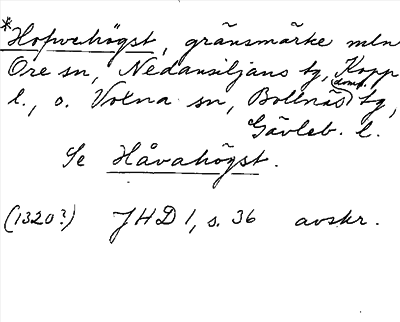 *Hofwahögst, gränsmärke mln
Ore sn, Nedansiljans tg, Kopp
l., o. Voxna sn, Bollnäs doms. tg,
Gävleb. l.
Se Håvahögst.
(1320?) JHD 1, s. 36 avskr.